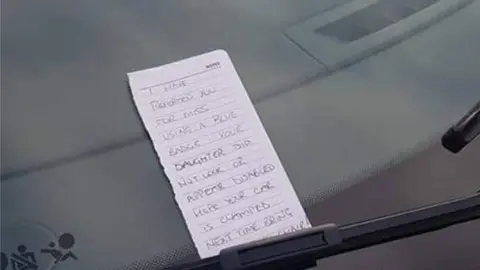 MEMO
I HAVE
REPORTED YOU
FOR MISS
USING A BLUE
BADGE YOUR
DAUGHTER DID
NOT LOOK OR
APPEAR DISABLED
HOPE YOUR CAR
IS CLAMPED
NEXT TIME BRING